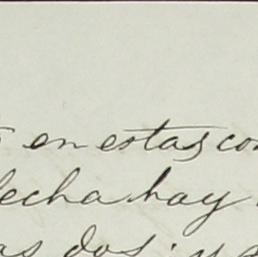 en estas con
fecha hay
as dos. y